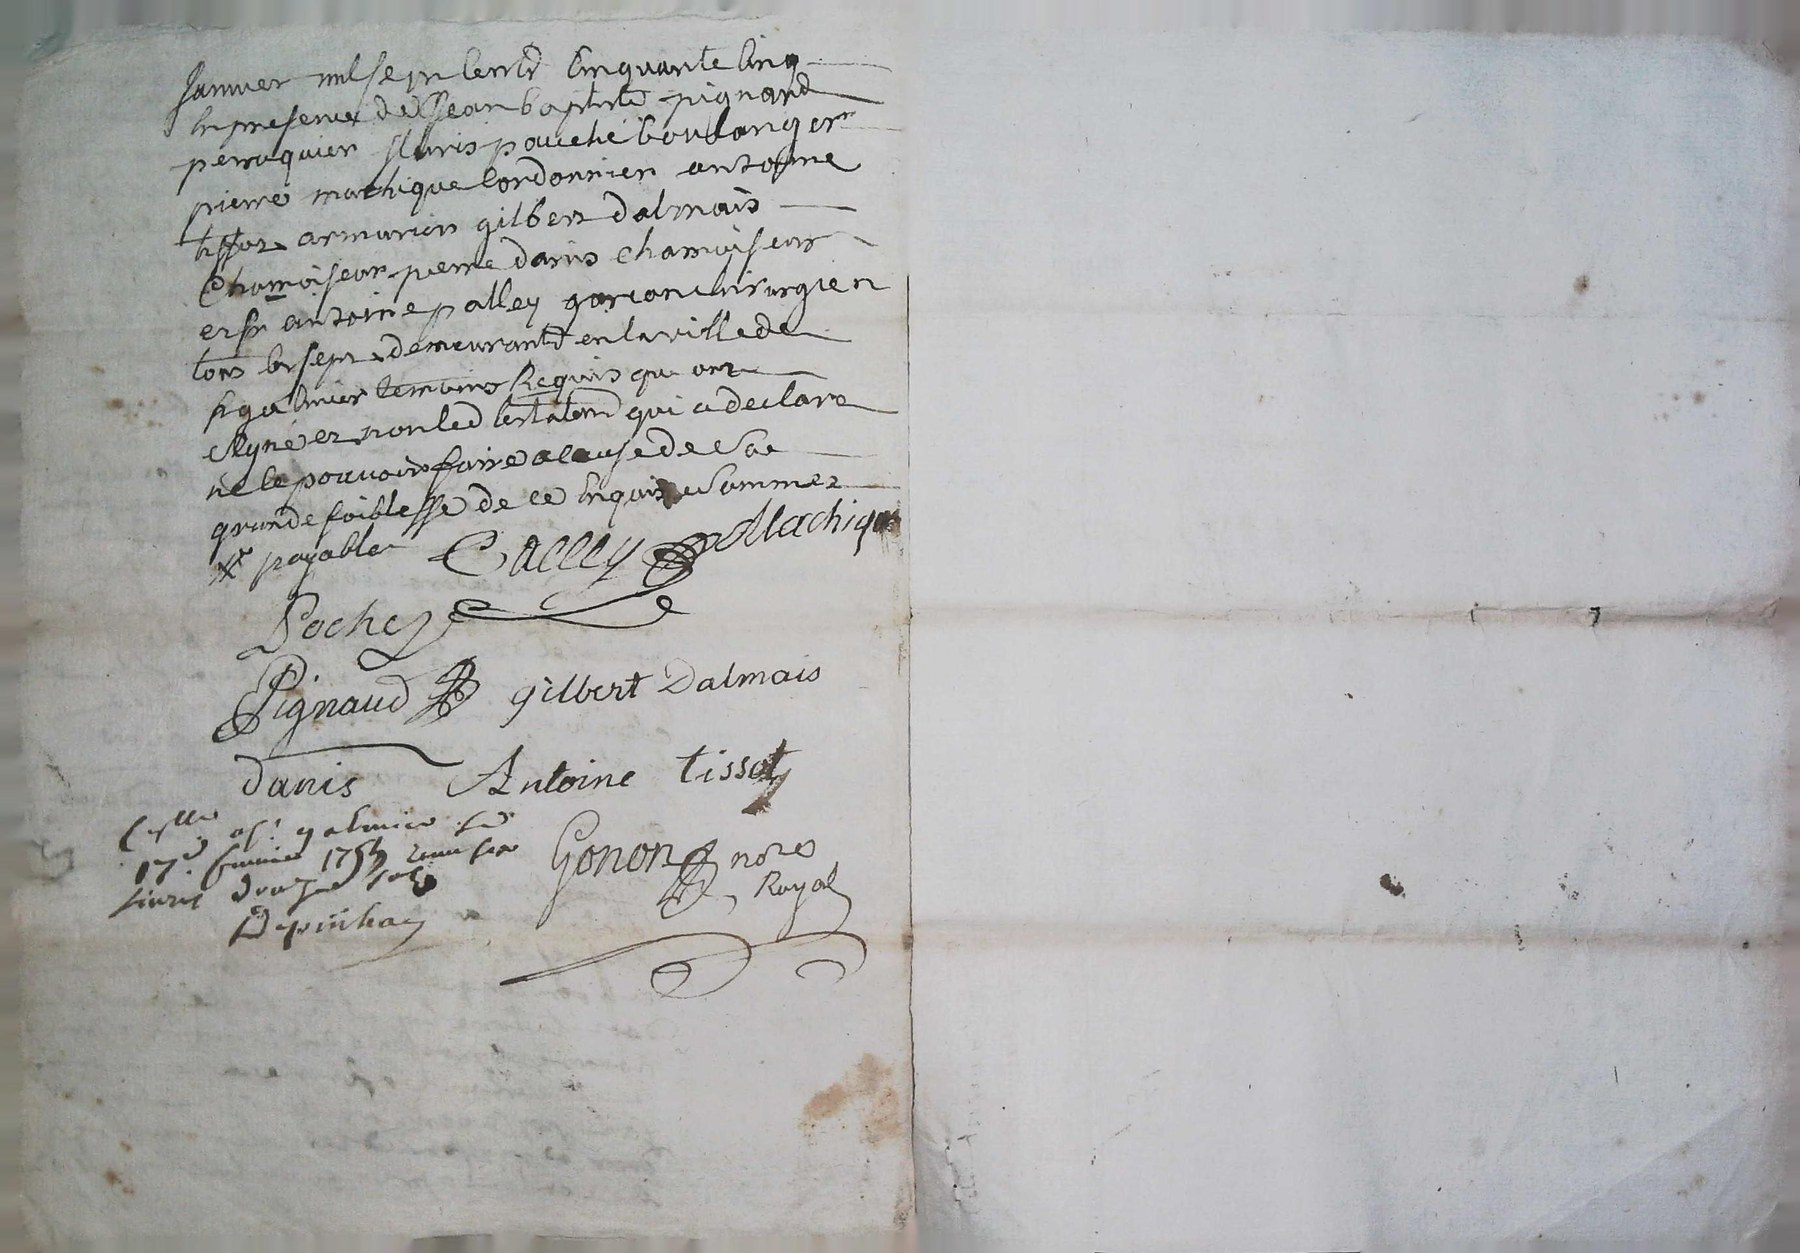 Janvier mil sept cents cinquante cinq
en presence de Jean baptiste pignard
perruquier Paris pouché boulanger
pierre machique Cordonnier antoine
tissot armurier gilbert dalmais
Chamoiseur pierre danis chamoiseur
et sr antoine palley garçon chirurgien
tous les sept demeurants en la ville de
st galmier temoins Requis qui ont
signé et non led testateur qui a declaré
ne le pouvoir faire a cause de sa
grande foiblesse de ce enquis et sommez
payable Palley Machique
Pochez
Pignaud gilbert Dalmais
danis Antoine tissot
a st galmier le
17e janvier 1755 Gonon nore
Royal